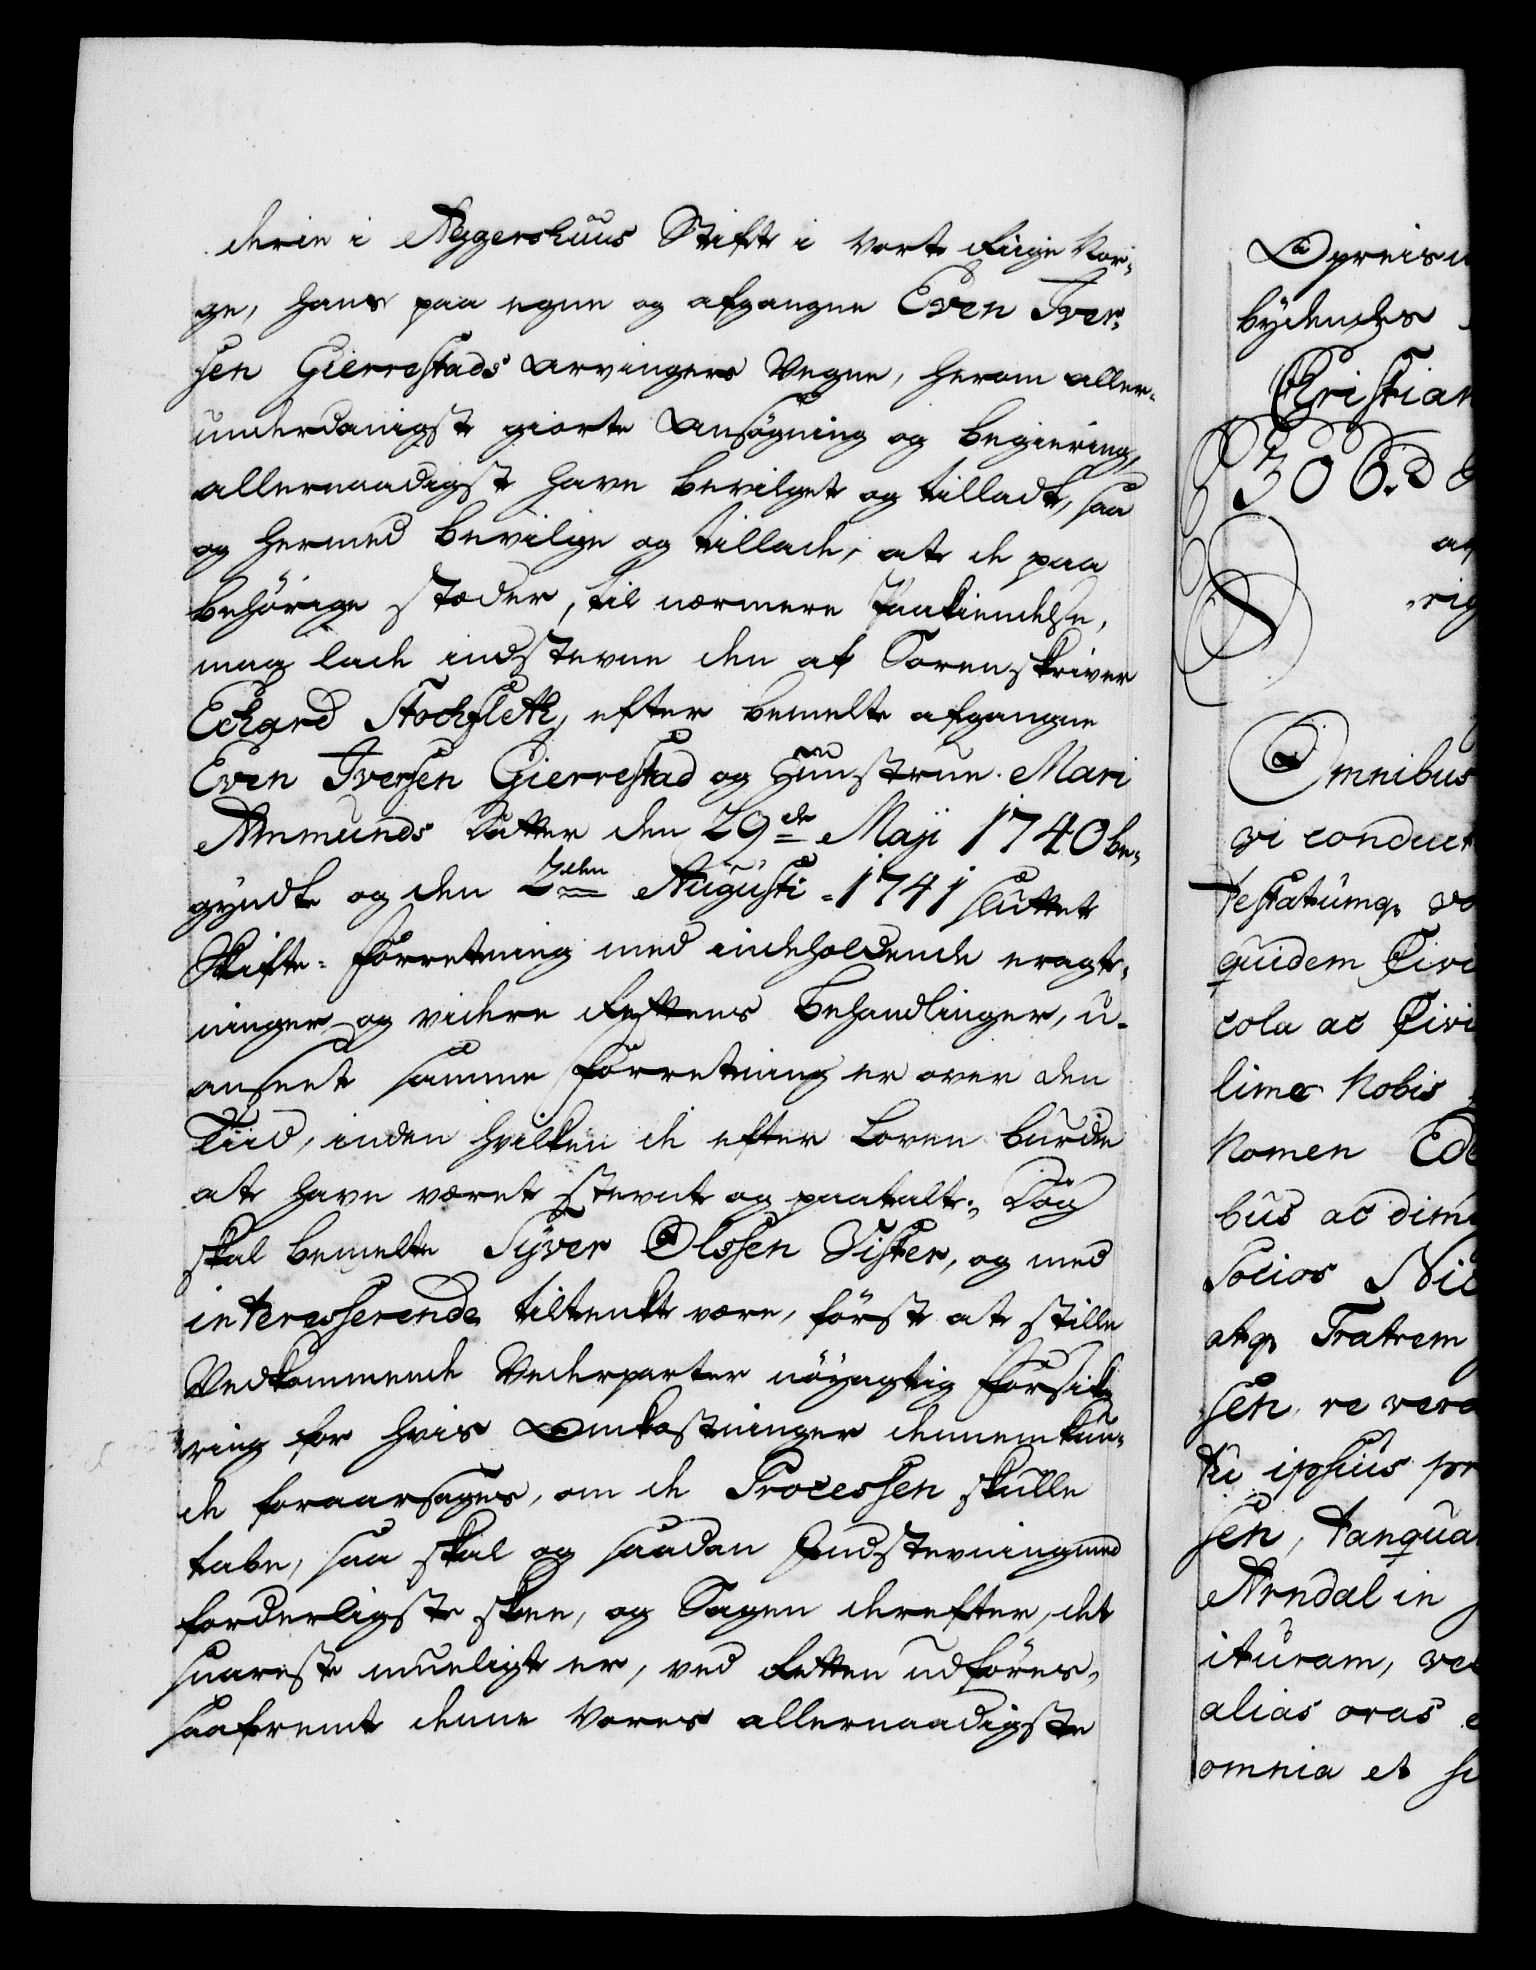 derie i Aggershuus Stift i vort Rige Nor-
ge, hans paa egne og afgangne Even Iver-
sen Gierrestads Arvingers Vegne, herom aller-
underdanigst giorte Ansøgning og Begiering,
allernaadigst have bevilget og tilladt, saa
og hermed bevilge og tillade, at de paa
behørige stæder, til nærmere Paakiendelse,
maa lade indstevne den af Sorenskriver
Eckard Stockfleth, efter bemelte afgangne
Even Iversen Gierrestad og Hustrue Mari
Ammunds Datter den 29de Maji 1740 be-
gyndte og den 2den Augusti 1741 sluttet
Skifte-Forretning med indeholdende eragt-
ninger og videre Rettens Behandlinger, u-
anseet samme Forretning er over den
Tiid, inden hvilken de efter Loven burde
at have været stevnt og paatalt; Dog
skal bemelte Syver Olssen Vister, og med
interesserende tiltenkt være, først at stille
Vedkommende Vederparter nøyagtig Forsik-
ring for hvis Omkostninger dennem kun-
de foraarsages, om de Processen skulle
tabe, saa skal og saadan Indstevning med
forderligste skee, og Sagen derefter, det
snareste mueligt er, ved Retten udføres,
saafremt denne Vores allernaadigste
Opreisn
bydendes
Christian
306.
Omnibus
vi conduct
testatumq, vo
quidem Civi
cola ac Civi
limes Nobis
Nomen Ede
bus ac dim
Socios Nic
atq, Fratrem
sen re vera
tu ipsius pr
sen, tanqua
Arndal in
ituram, ve
alias oras
omnia et